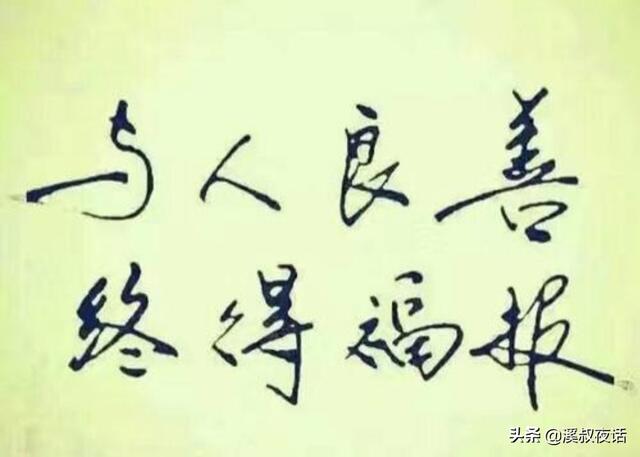 与人良善
终得福报
头条 @溪叔夜话